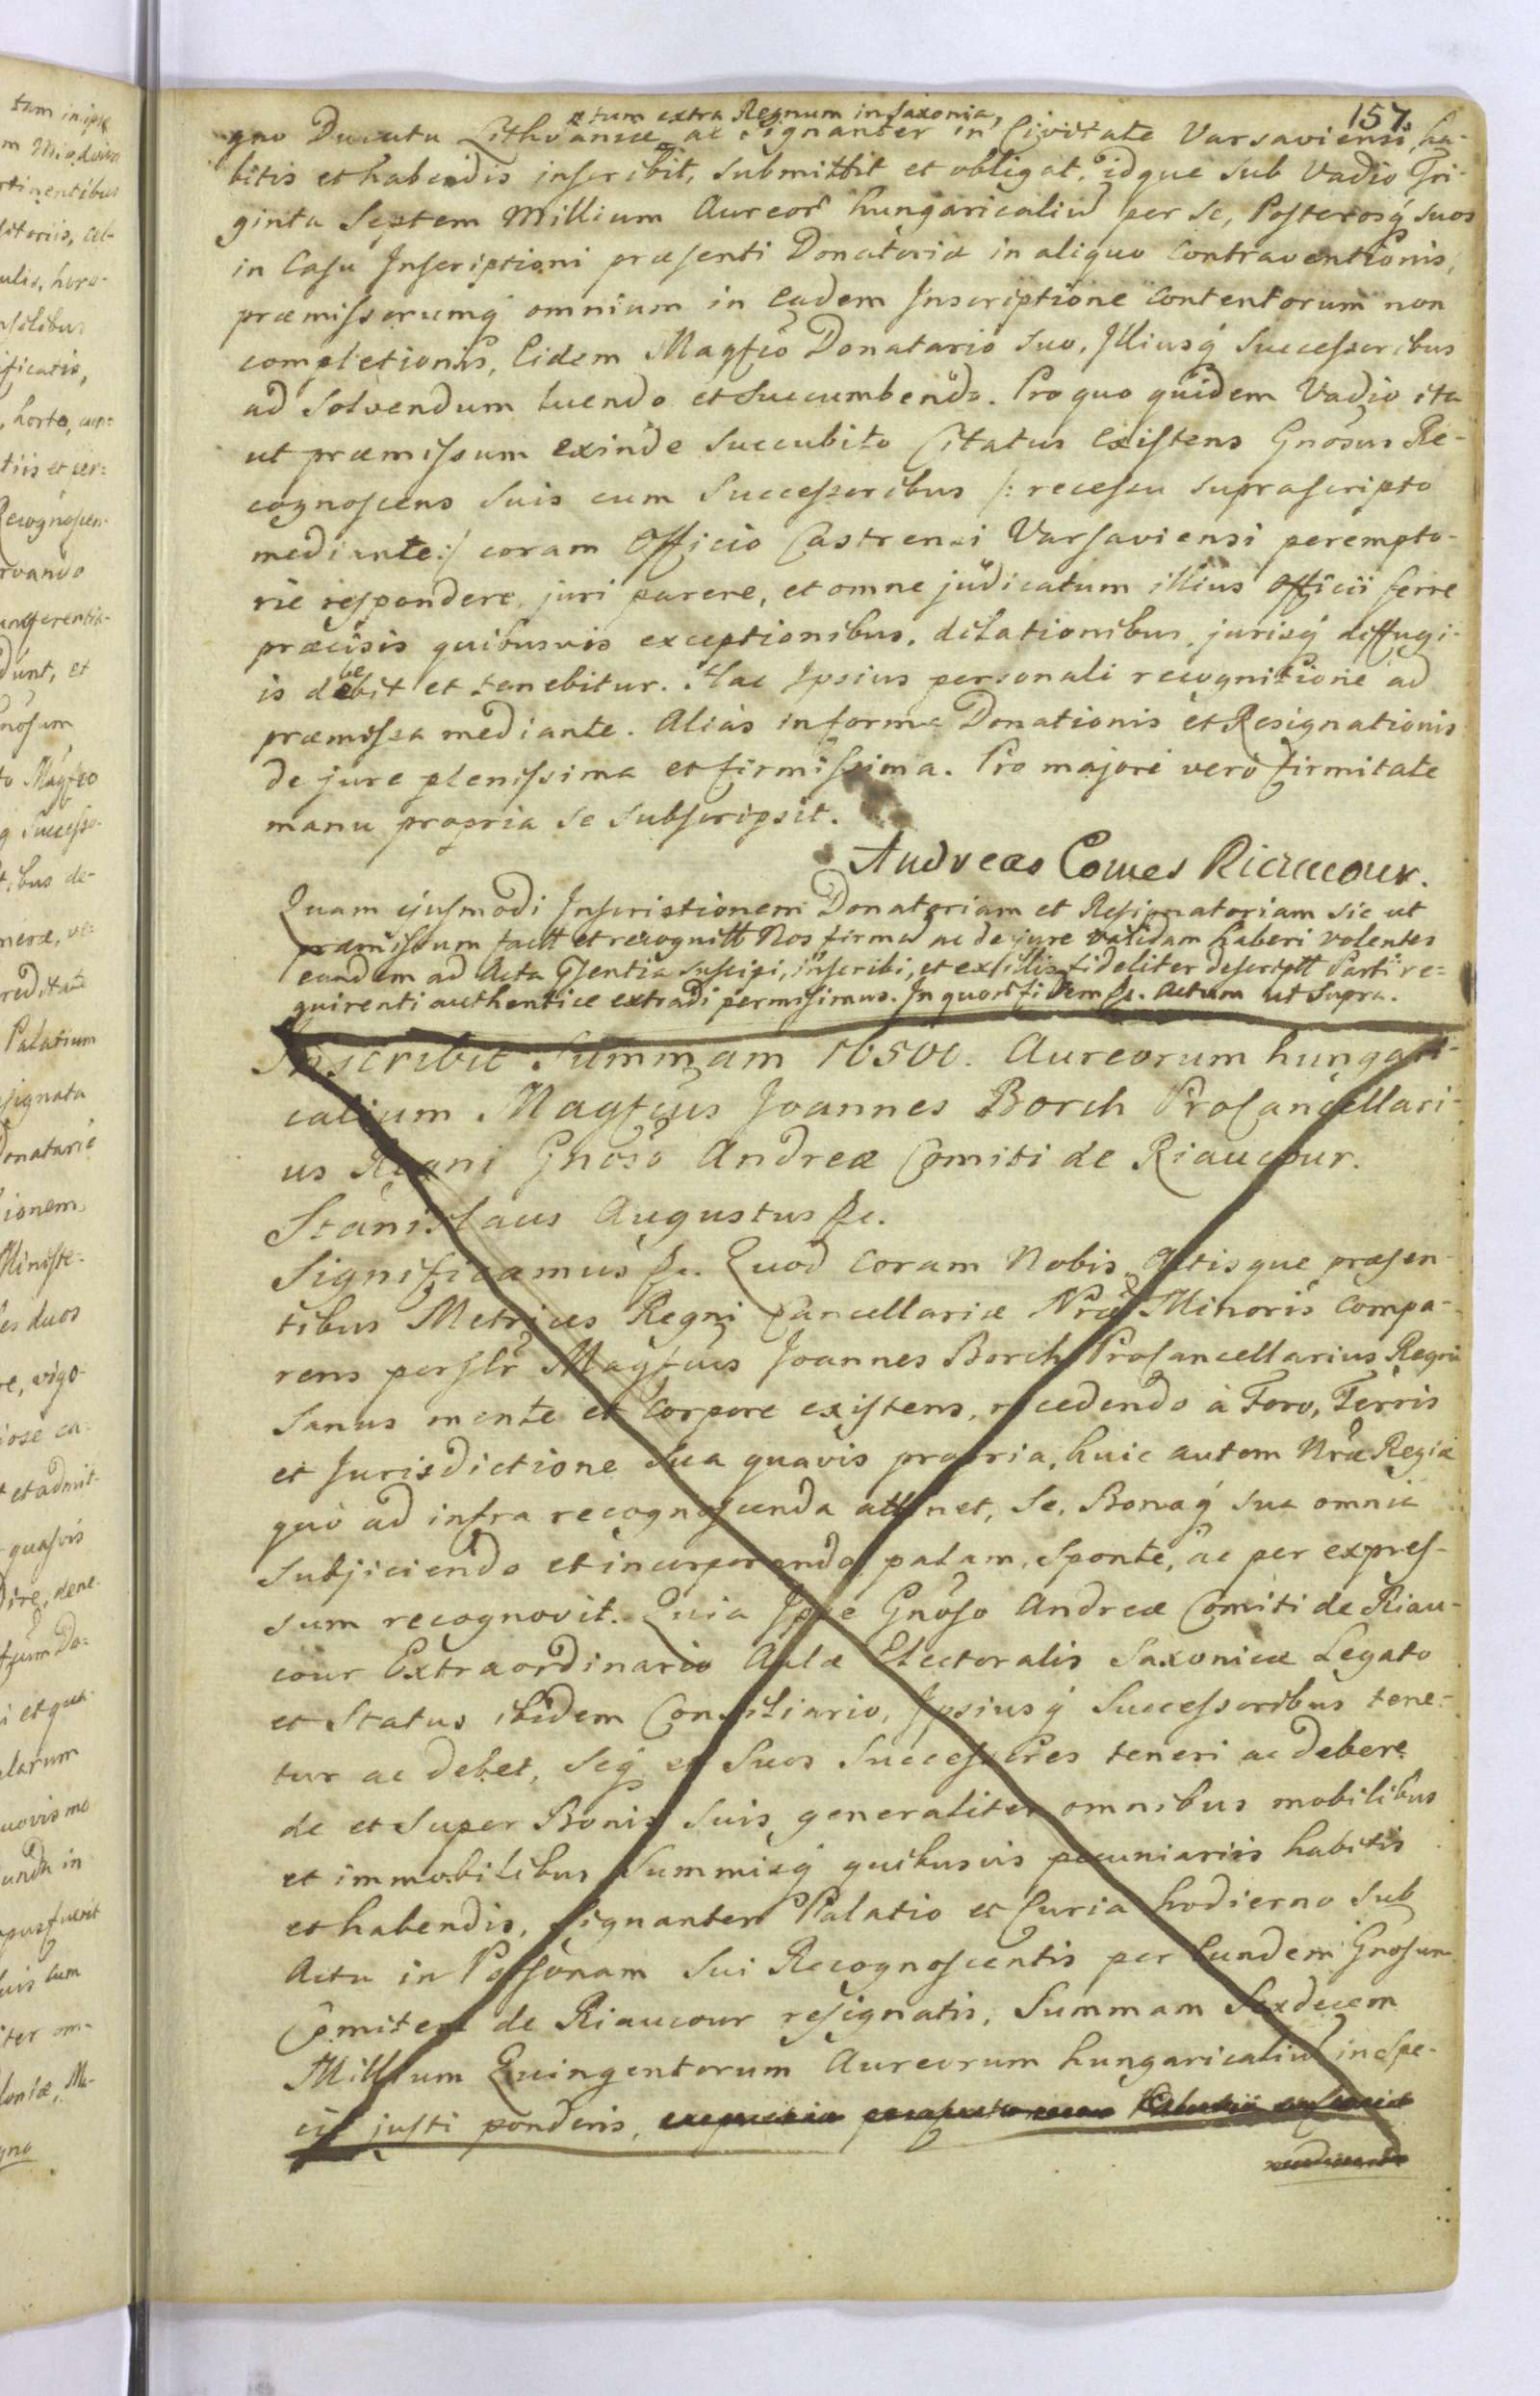 157.
etum extra Regnum in Saxonia,
gno Ducatu Lithvaniæ ac signanter in Civitate Varsaviensi, ha-
bitis et habendis inscribit, submittit et obligat, idque sub Vadio Tri-
ginta Septem Millium Aureor hungaricaliu per se, Posterosq́ suos
in Casu Inscriptioni præsenti Donatoriæ in aliquo Contraventionis,
præmissorumq́ omnium in Eadem Inscriptione Contentorum non
completionis, Eidem Magfco Donatario suo, Illiusq́ Successoribus
ad solvendum luendo et Succumbendo. Pro quo quidem Vadio ita
ut præmissum exinde Succubito Citatus Existens Gnosus Re-
cognoscens Suis cum Successoribus /: recessu suprascripto
mediante :/ coram Officio Castrensi Varsaviensi perempto-
rie respondere, juri parere, et omne judicatum illius Officii ferre
præcisis quibusvis exceptionibus, dilationibus, jurisq́ diffugi-
is debebit et tenebitur. Hac Ipsius personali recognitione ad
præmissa mediante. Alias in forma Donationis et Resignationis
de jure plenissima et firmissima. Pro majori vero firmitate
manu propria se subscripsit.
Andreas Comes Riaucour.
Quam ejusmodi Inscriptionem Donatoriam et Resignatoriam sic ut
præmissum factt et recognitt Nos firma ac de jure validam haberi volentes
eandem ad Acta Psentia suscipi, inscribi, et ex illis fideliter descriptt Parti re=
quirenti authentice extradi permisimus. In quor fidem &c. Actum ut Supra.
Inscribit Summam 16500. Aureorum hungari-
calium Magfcus Joannes Borch Procancellari-
us Regni Gnoso Andreæ Comiti de Riaucour.
Stanislaus Augustus &c.
Significamus &c. Quod coram Nobis Actisque præsen-
tibus Metrices Regni Cancellariæ Nræ Minoris Compa-
rens persltr Magfcus Joannes Borch Procancellarius Regni
Sanus mente et Corpore existens, recedendo à Foro, Terris
et Jurisdictione Sua quavis propria, huic autem Nræ Regiæ
quò ad infra recognoscenda attinet, Se, Bonaq́ sua omnia
subjiciendo et incorporando, palam, sponte, ac per expres-
sum recognovit. Quia Ipse Gnoso Andreæ Comiti de Riau-
cour Extraordinario Aulæ Electoralis Saxonicæ Legato
et Status ibidem Consiliario, Ipsiusq́ Successoribus tene-
tur ac debet, Seq́ et Suos Successores teneri ac debere
de et super Bonis suis generaliter omnibus mobilibus
et immobilibus Summisq́ quibusvis pecuniariis habitis
et habendis, signanter Palatio et Curia hodierno sub
Actu in Personam Sui Recognoscentis per Eundem Gnosum
Comitem de Riaucour resignatis, Summam Sexdecem
Millium Quingentorum Aureorum hungaricaliu in spe-
cie justi ponderis,